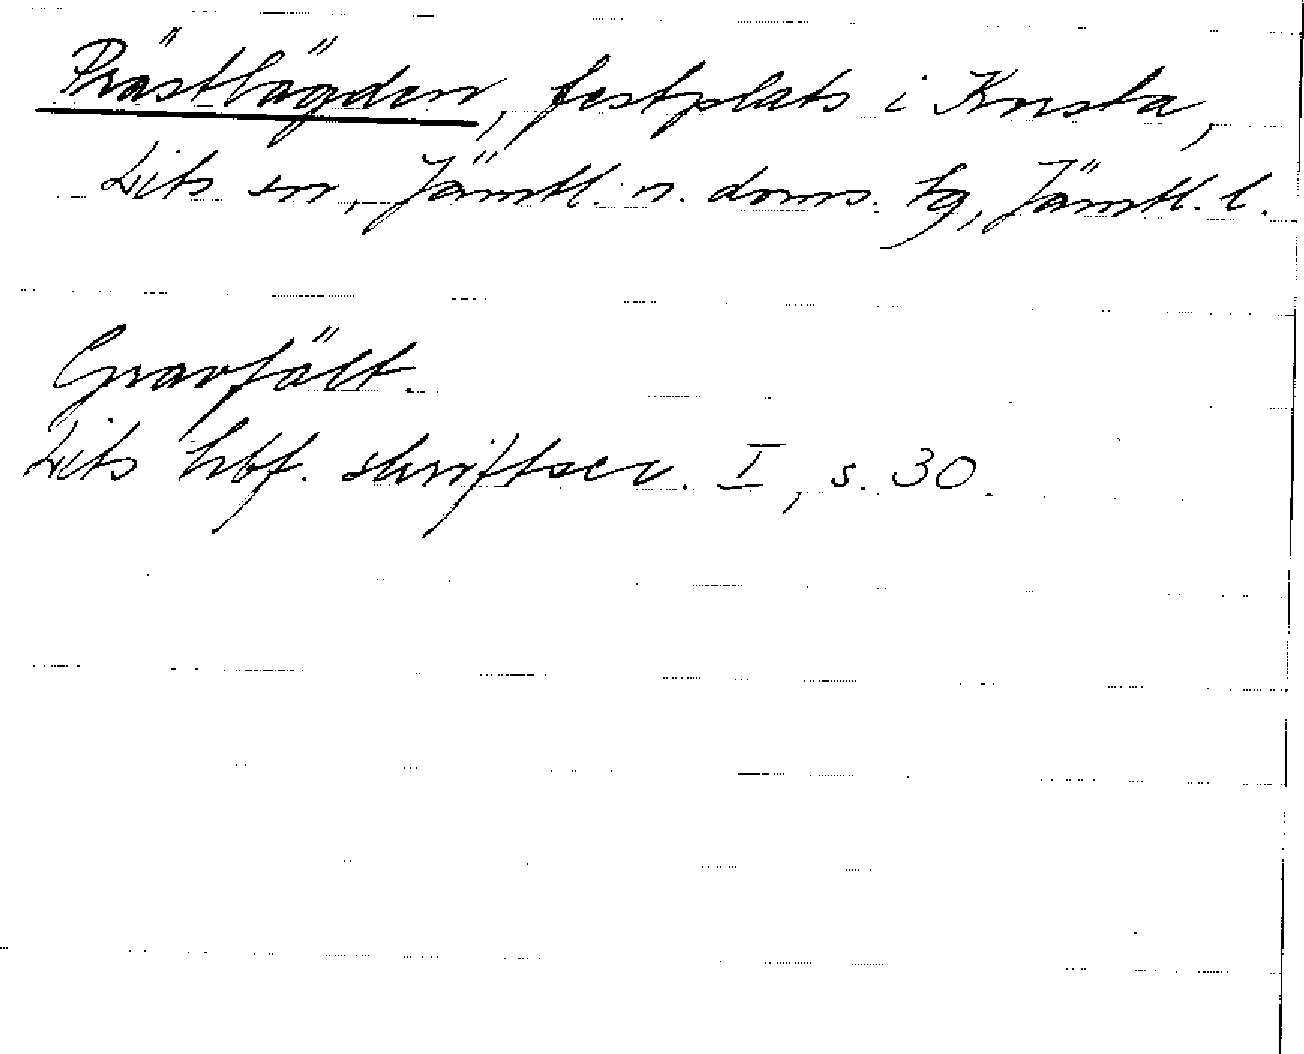 Prästlägden, festplats i Krusta,
Lits sn, Jämtl. n. doms. tg, Jämtl. l.
Gravfält.
Lits hbf. skriftser. I, s. 30.